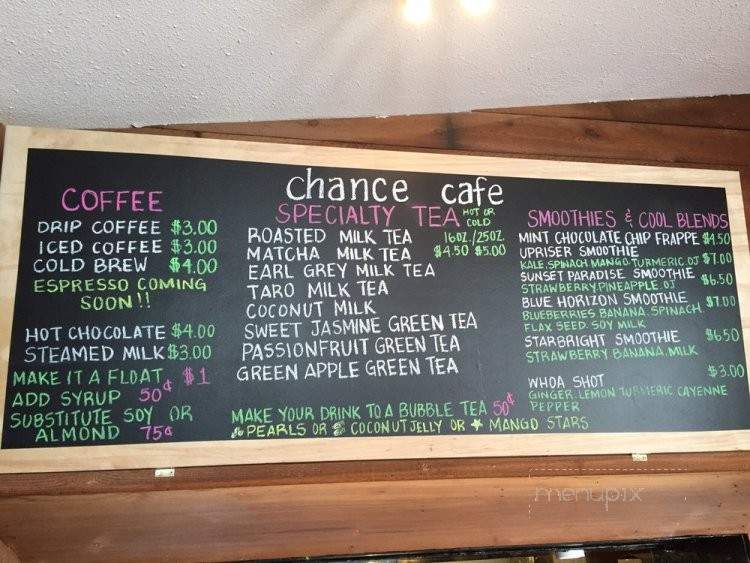 chance cafe
COFFEE
DRIP COFFEE $3.00
ICED COFFEE $3.00
COLD BREW $4.00
ESPRESSO COMING
SOON!!
HOT CHOCOLATE $4.00
STEAMED MILK $3.00
MAKE IT A FLOAT $1
ADD SYRUP 50¢
SUBSTITUTE SOY OR
ALMOND 75¢
SPECIALTY TEA HOT OR
COLD
16OZ./25OZ.
$4.50 $5.00
ROASTED MILK TEA
MATCHA MILK TEA
EARL GREY MILK TEA
TARO MILK TEA
COCONUT MILK
SWEET JASMINE GREEN TEA
PASSIONFRUIT GREEN TEA
GREEN APPLE GREEN TEA
MAKE YOUR DRINK TO A BUBBLE TEA 50¢
PEARLS OR COCONUT JELLY OR MANGO STARS
SMOOTHIES & COOL BLENDS
MINT CHOCOLATE CHIP FRAPPE $4.50
UPRISER SMOOTHIE
KALE.SPINACH.MANGO.TURMERIC.OJ $7.00
SUNSET PARADISE SMOOTHIE
STRAWBERRY.PINEAPPLE.OJ $6.50
BLUE HORIZON SMOOTHIE $7.00
BLUEBERRIES.BANANA.SPINACH.
FLAX SEED.SOY MILK
STARBRIGHT SMOOTHIE $6.50
STRAWBERRY.BANANA.MILK
WHOA SHOT $3.00
GINGER.LEMON.TURMERIC CAYENNE
PEPPER
menupix